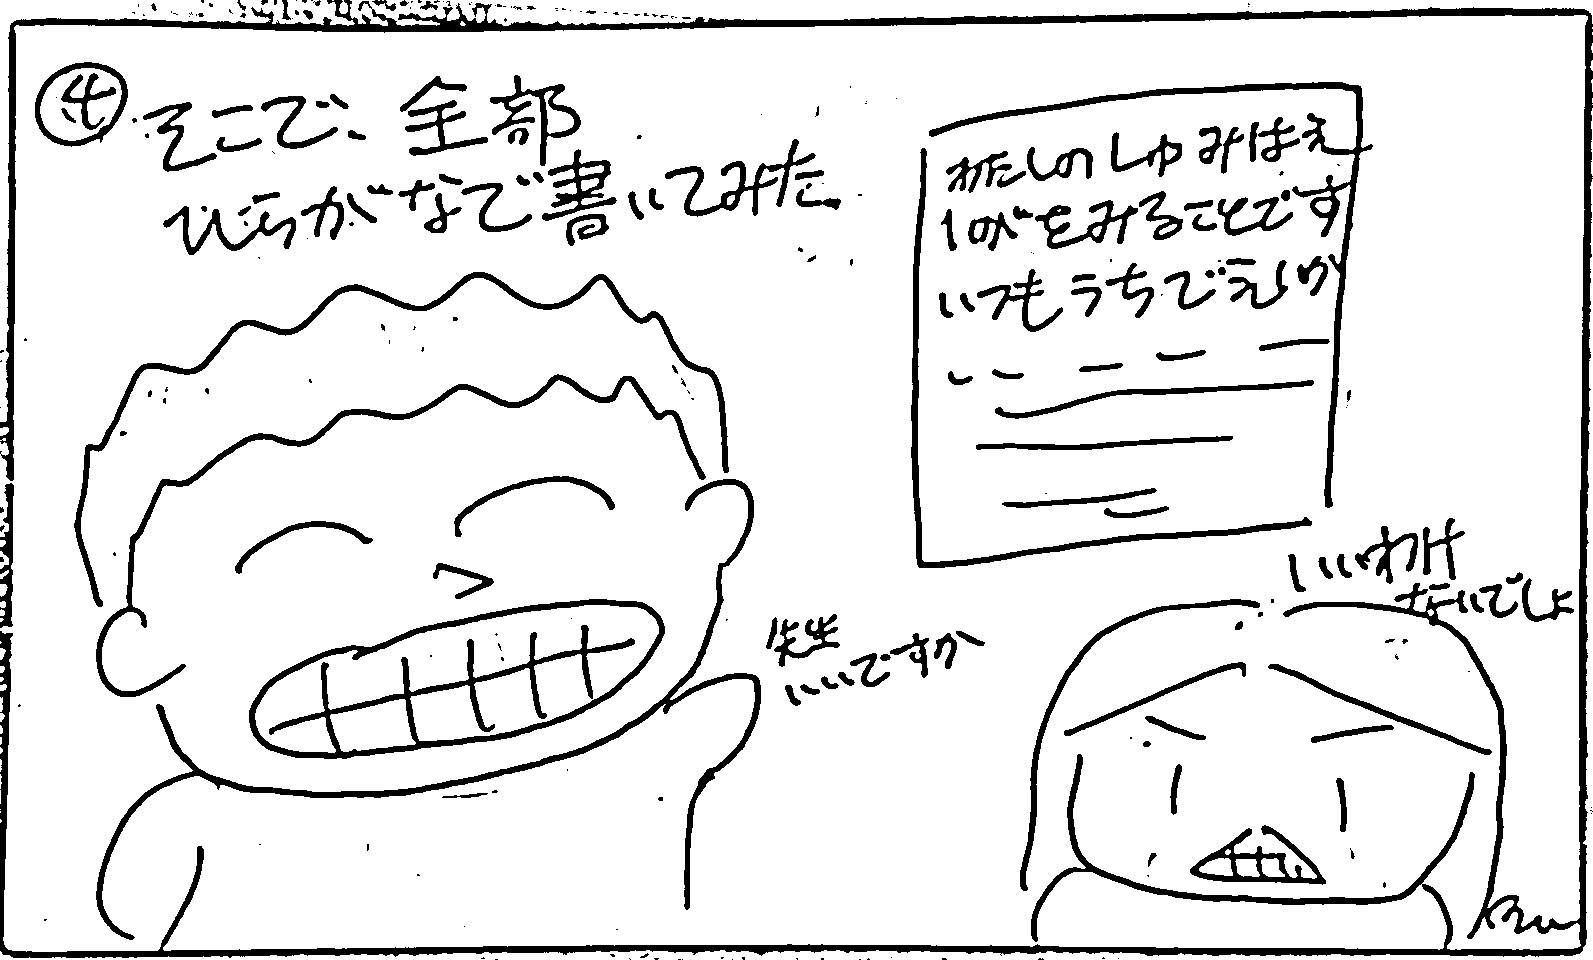 生
そこで、全部
ひらがなで書いてみた。
わたしのしゅみはえ
いがをみることです
いつもうちでえいが
先生
いいですか
いいわけ
ないでしょ